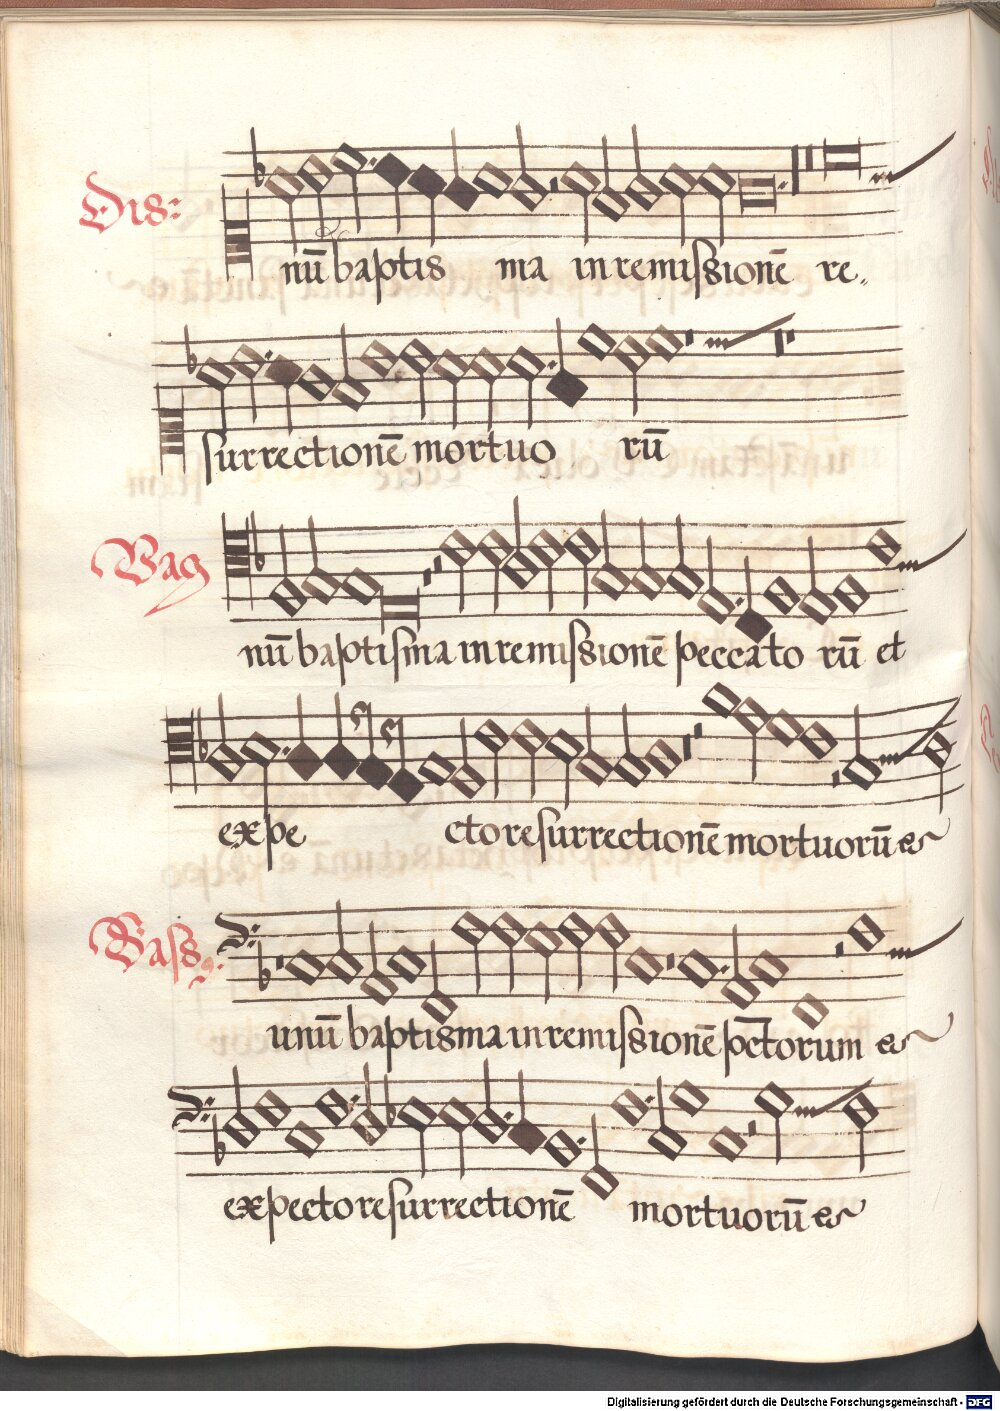 Dis:
nū baptis ma in remissionē re„
surrectionē mortuo rū
Vag
nū baptisma in remissionē peccato rū et
expe cto resurrectionē mortuorū
Bass9:
unū baptisma in remissionē pctorum
expecto resurrectionē mortuorū
Digitalisierung gefördert durch die Deutsche Forschungsgemeinschaft - DFG